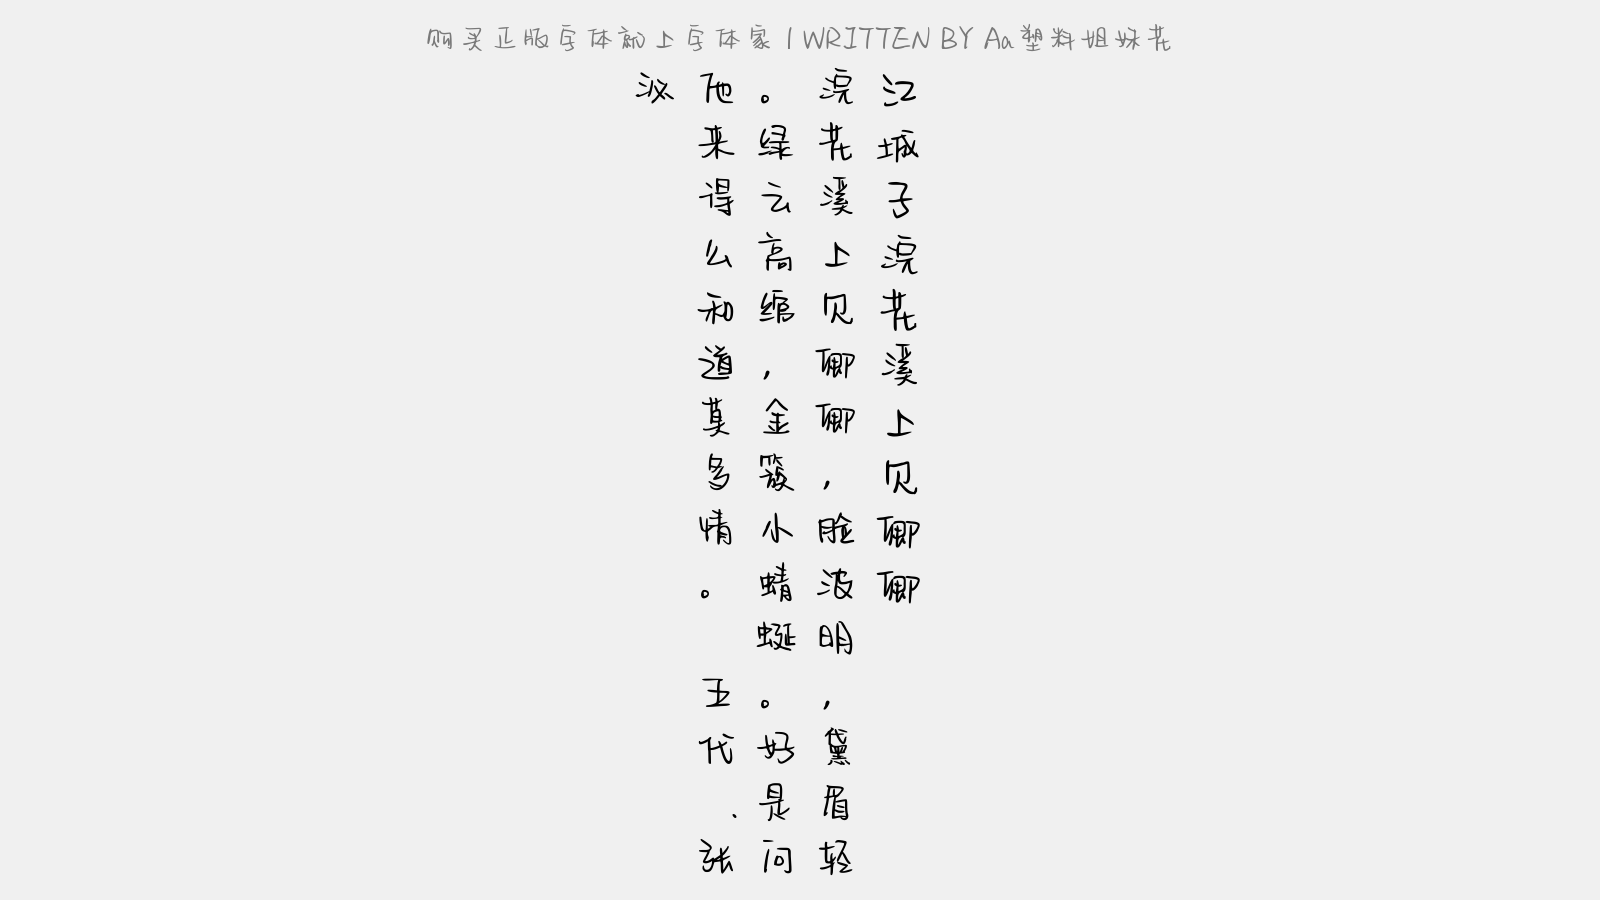 购买正版字体就上字体家 | WRITTEN BY Aa塑料姐妹花
江城子浣花溪上见卿卿
浣花溪上见卿卿，脸波明，黛眉轻
。绿云高绾，金簇小蜻蜓。好是问
他来得么和道莫多情。 五代、张
泌